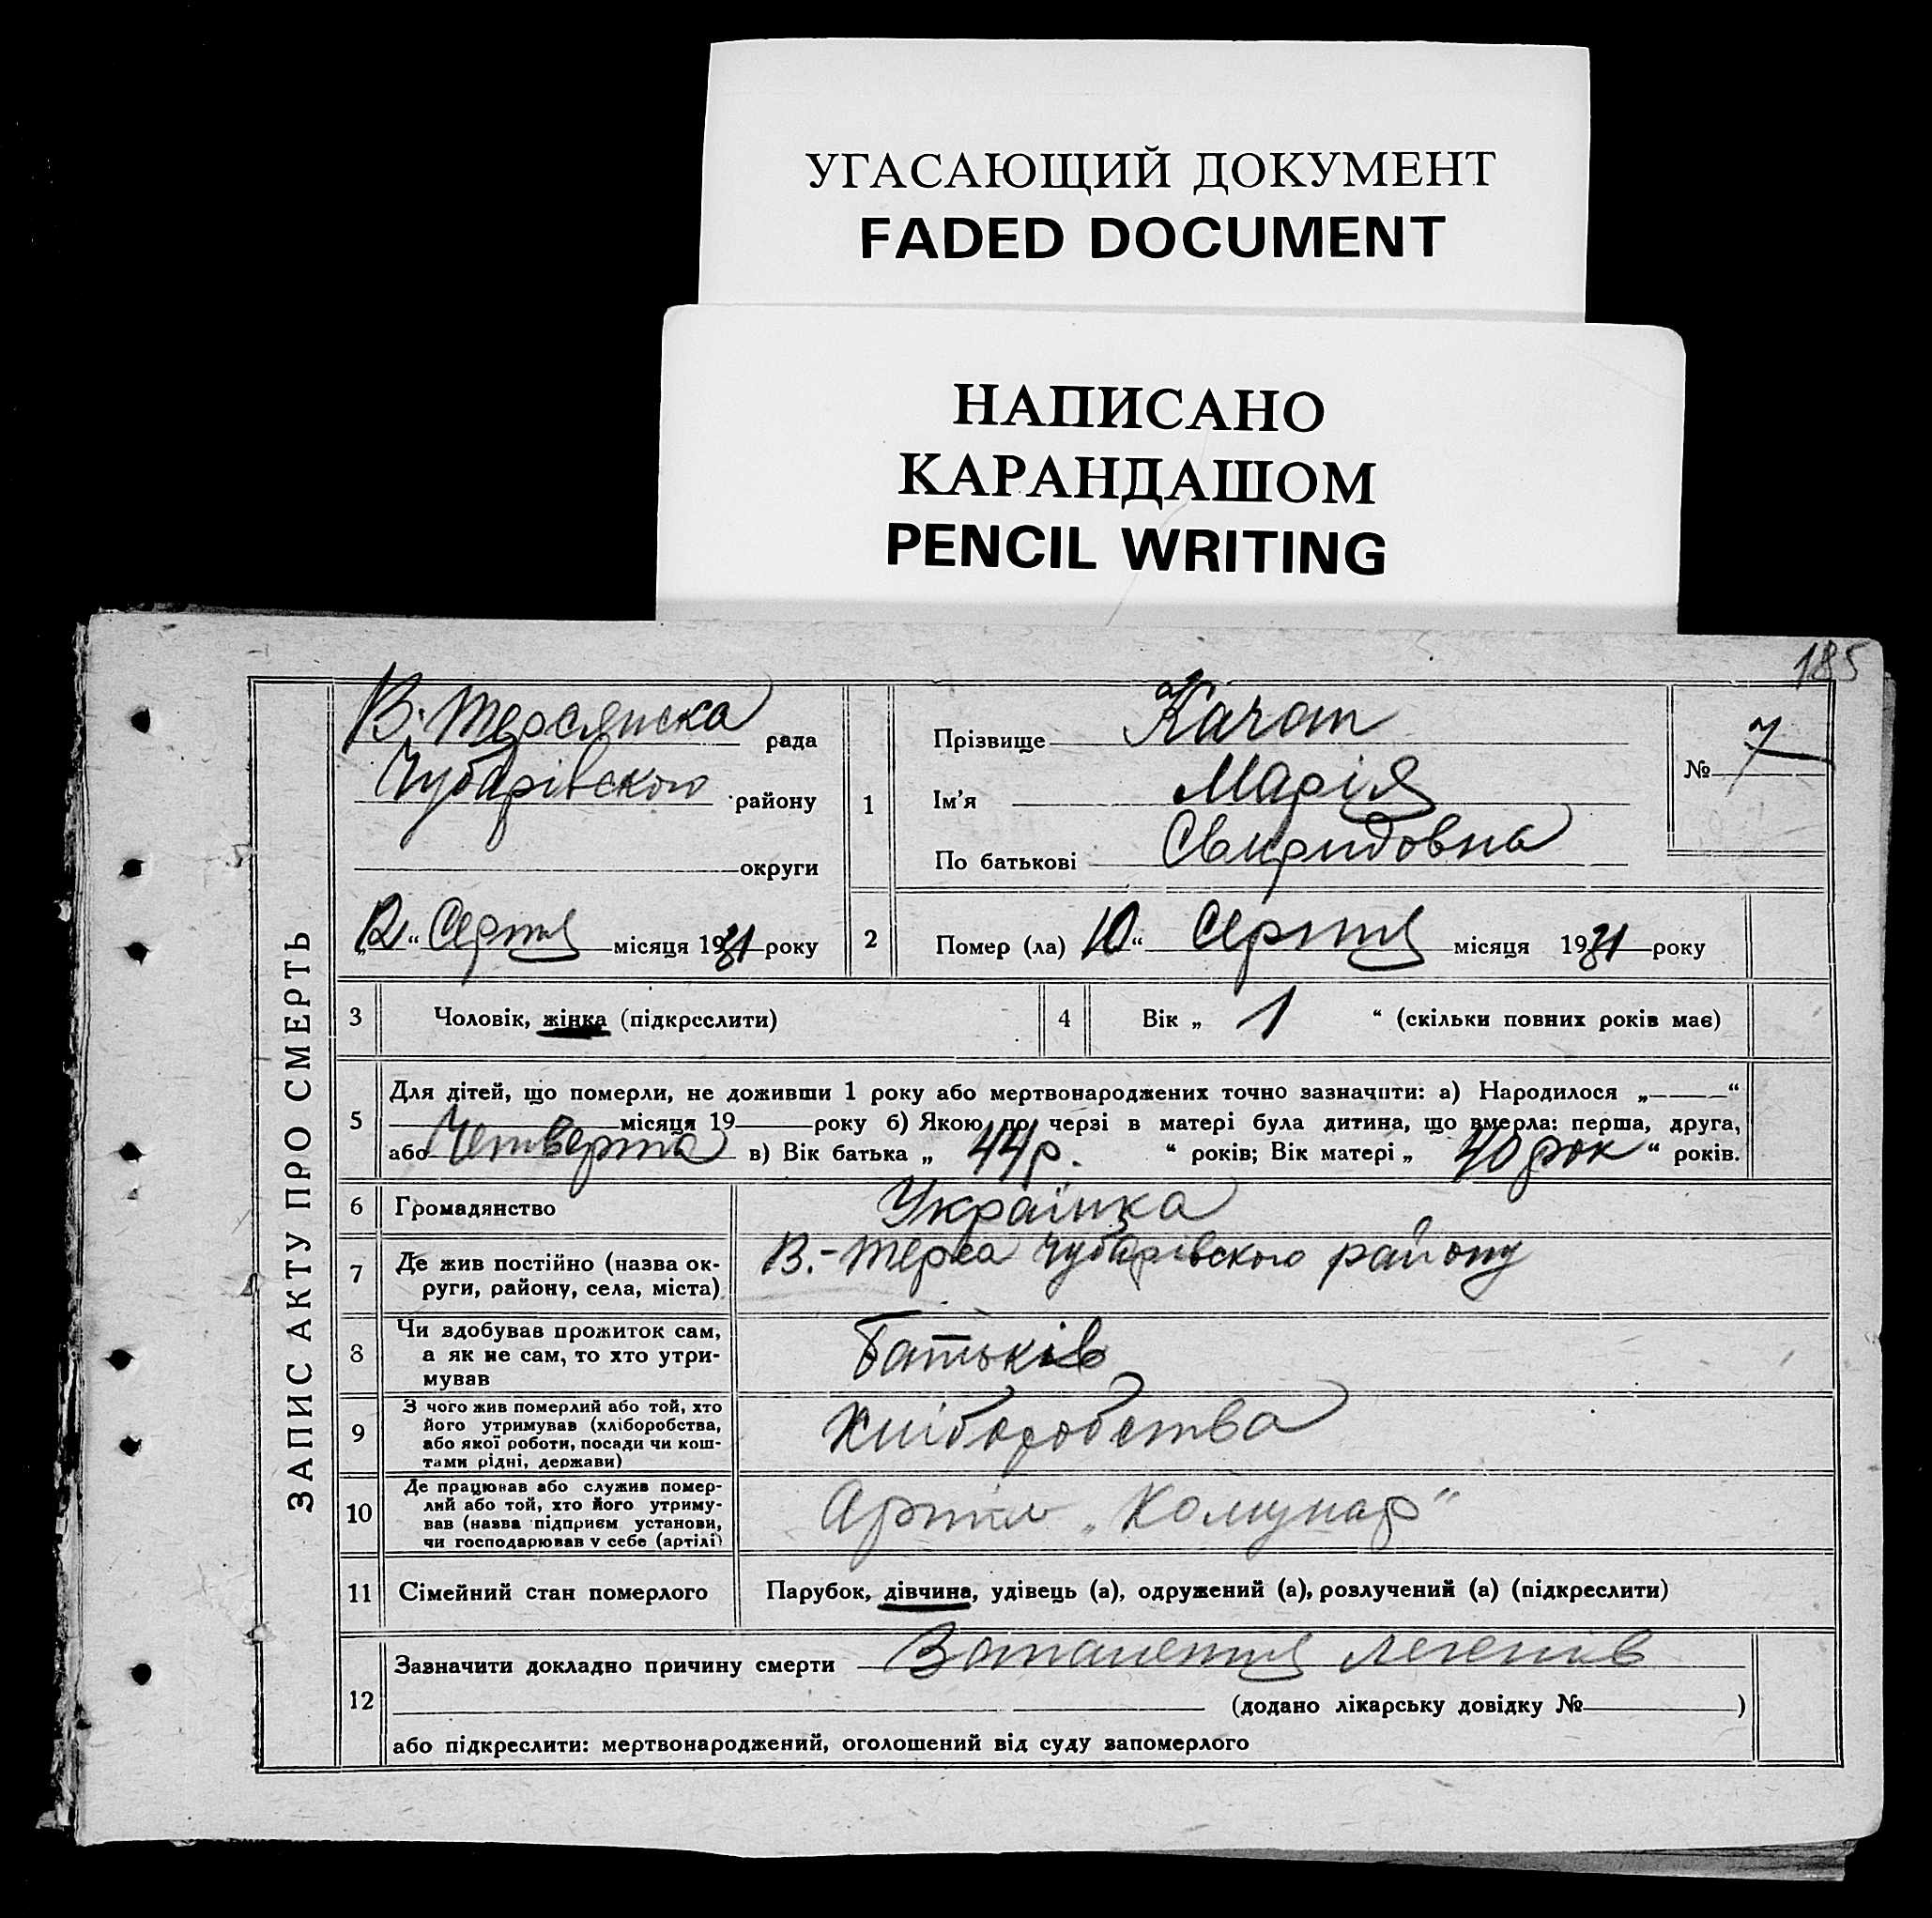 УГАСАЮЩИЙ ДОКУМЕНТ
FADED DOCUMENT
НАПИСАНО
КАРАНДАШОМ
PENCIL WRITING
185
ЗАПИС АКТУ ПРО СМЕРТЬ
В. Терсянська рада
Чубарівського району
округи
„12“ Серпня місяця 1931 року
1
Прізвище Качан
Ім’я Марія
По батькові Свиридовна
№ 7
2 Помер (ла) 10“ Серпня місяця 1931 року
3 Чоловік, жінка (підкреслити)
4 Вік „ 1 “ (скільки повних років має)
5 Для дітей, що померли, не доживши 1 року або мертвонароджених точно зазначити: а) Народилося „ “
місяця 19 року б) Якою по черзі в матері була дитина, що вмерла: перша, друга,
або Четверта в) Вік батька „ 44 р. “ років; Вік матері „ 40 рок “ років.
6 Громадянство Українка
7 Де жив постійно (назва ок-
руги, району, села, міста)
В.-Терса Чубарівського району
8 Чи здобував прожиток сам,
а як не сам, то хто утри-
мував
Батьків
9 З чого жив померлий або той, хто
його утримував (хліборобства,
або якої роботи, посади чи кош-
тами рідні, держави)
Хліборобства
10 Де працював або служив помер-
лий або той, хто його утриму-
вав (назва підприєм установи,
чи господарював у себе (артілі)
Артіль „Комунар“
11 Сімейний стан померлого Парубок, дівчина, удівець (а), одружений (а), розлучений (а) (підкреслити)
12 Зазначити докладно причину смерти легенів
(додано лікарську довідку № )
або підкреслити: мертвонароджений, оголошений від суду запомерлого